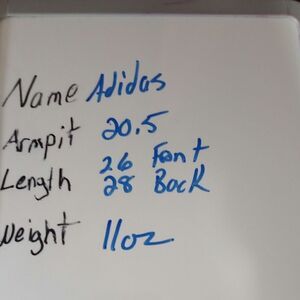 Name Adidas
Armpit 20.5
26 Font
Length 28 Back
Weight 11oz